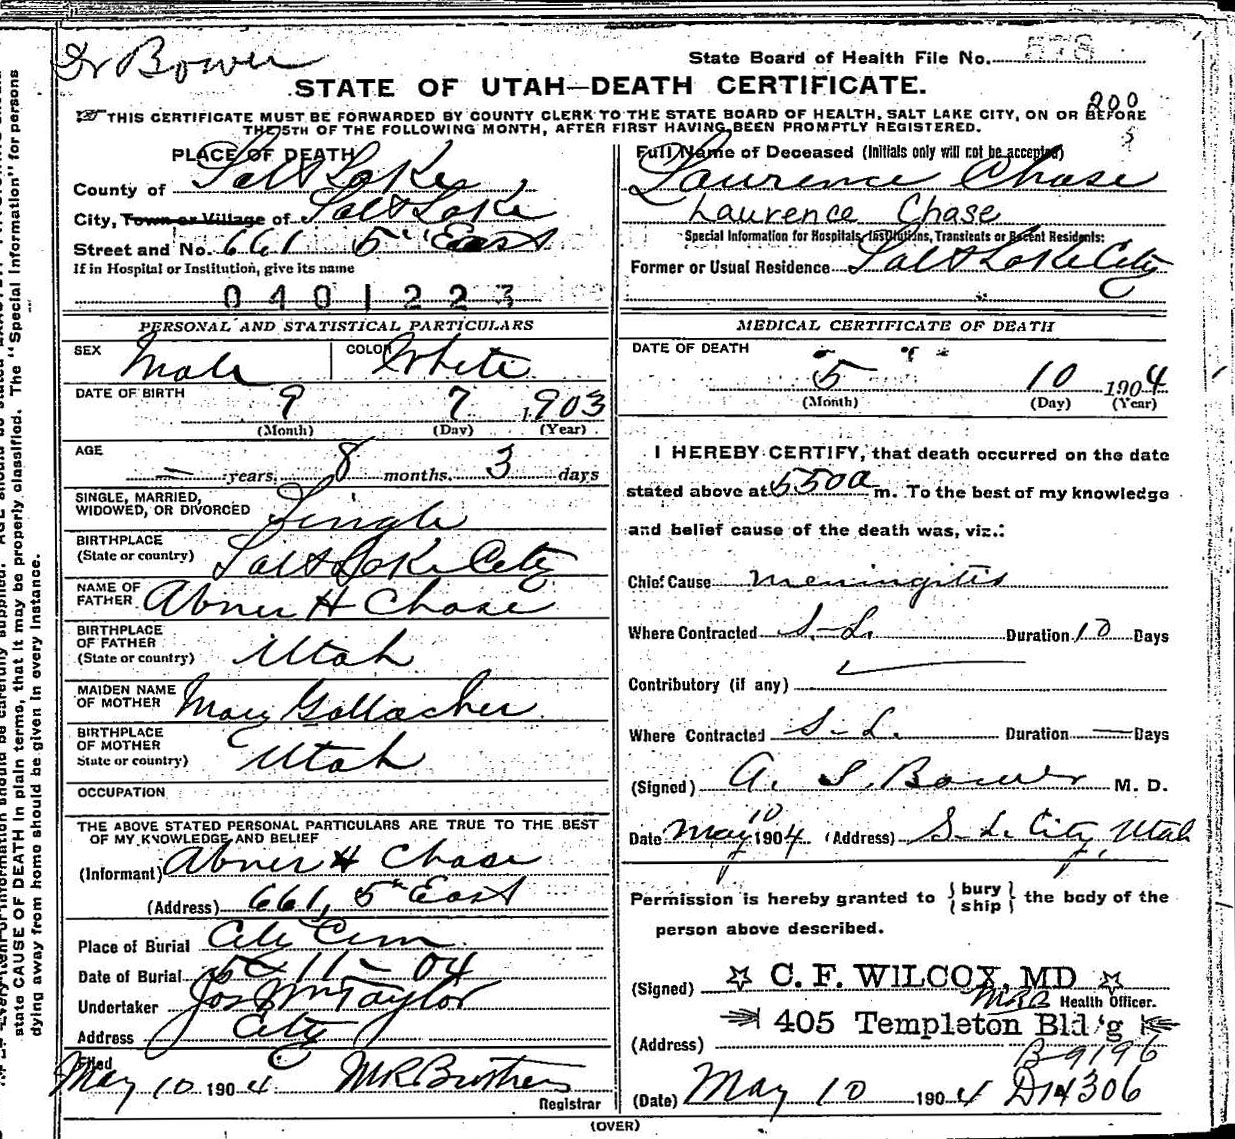 Dr Bower
State Board of Health File No. 578
STATE OF UTAH—DEATH CERTIFICATE.
THIS CERTIFICATE MUST BE FORWARDED BY COUNTY CLERK TO THE STATE BOARD OF HEALTH, SALT LAKE CITY, ON OR BEFORE
THE 5TH OF THE FOLLOWING MONTH, AFTER FIRST HAVING BEEN PROMPTLY REGISTERED.
200
5
PLACE OF DEATH
County of Salt Lake
City, Town or Village of Salt Lake
Street and No. 661 5" East
If in Hospital or Institution, give its name
0401223
Full Name of Deceased (Initials only will not be accepted)
Laurence Chase
Laurence Chase
Special Information for Hospitals, Institutions, Transients or Recent Residents:
Former or Usual Residence Salt Lake City
PERSONAL AND STATISTICAL PARTICULARS
SEX Male COLOR White
DATE OF BIRTH 9 7 1903
(Month) (Day) (Year)
AGE
— years, 8 months, 3 days
SINGLE, MARRIED,
WIDOWED, OR DIVORCED Single
BIRTHPLACE
(State or country) Salt Lake City
NAME OF
FATHER Abner H Chase
BIRTHPLACE
OF FATHER
(State or country) Utah
MAIDEN NAME
OF MOTHER Mary Gallacher
BIRTHPLACE
OF MOTHER
State or country) Utah
OCCUPATION
THE ABOVE STATED PERSONAL PARTICULARS ARE TRUE TO THE BEST
OF MY KNOWLEDGE AND BELIEF
(Informant) Abner H Chase
(Address) 661, 5th East
Place of Burial City Cem
Date of Burial 5-11-04
Undertaker Jos Wm Taylor
Address City
Filed
May 10 1904 MR Brothers
Registrar
MEDICAL CERTIFICATE OF DEATH
DATE OF DEATH
5 10 1904
(Month) (Day) (Year)
I HEREBY CERTIFY, that death occurred on the date
stated above at 550a m. To the best of my knowledge
and belief cause of the death was, viz.:
Chief Cause meningitis
Where Contracted S.L. Duration 10 Days
Contributory (if any)
Where Contracted S.L. Duration — Days
(Signed) A. S. Bower M. D.
Date May 10 1904 (Address) S. L. City, Utah
Permission is hereby granted to {bury
ship} the body of the
person above described.
(Signed) C. F. WILCOX, MD
MRB Health Officer.
405 Templeton Bld'g
(Address)
B-9196
(Date) May 10 1904 D14306
(OVER)
state CAUSE OF DEATH in plain terms, that it may be properly classified. The "Special Information" for persons
dying away from home should be given in every instance.